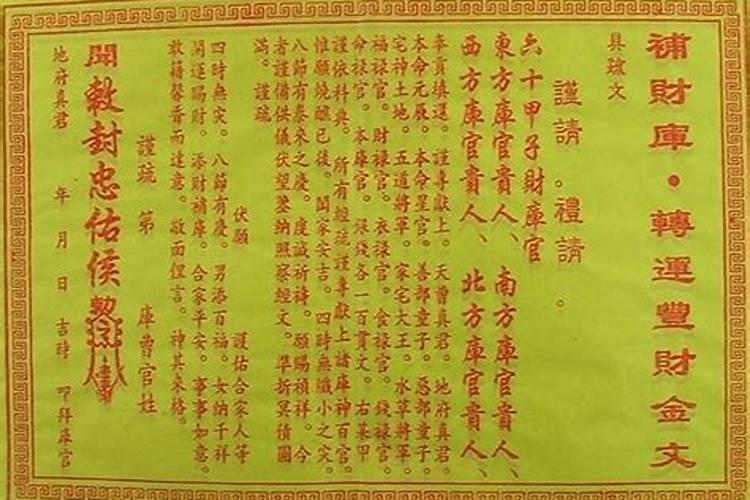 補財庫•轉運豐財金文
具疏文
謹請。禮請。
六十甲子財庫官
東方庫官貴人、南方庫官貴人、
西方庫官貴人、北方庫官貴人、
奉貢填還。謹專獻上。天曹真君。地府真君。
本命元辰。本命星官。善部童子。惡部童子。
宅神土地。五道將軍。家宅大王。水草將軍。
福祿官。財祿官。衣祿官。食祿官。錢祿官。
命祿官。本庫官。銀錢各一百貫文。右某甲
謹依科典。所有經疏謹專獻上諸庫神百官。
惟願燒醮已後。闔家安吉。四時無纖小之災。
八節有泰來之慶。虔誠祈禱。願賜禎祥。今
者謹備供儀伏望鑒納照察經文。準折冥債圓
滿。謹疏。
伏願 護佑合家人等
四時無災。八節有慶。男添百福。女納千祥
開運賜財。添財補庫。合家平安。事事如意。
敢藉馨香而達意。敬面俚言。神其來格。
謹疏 第 庫曹官姓
開敕封忠佑侯
地府真君 年 月 日 吉時 叩拜庫官